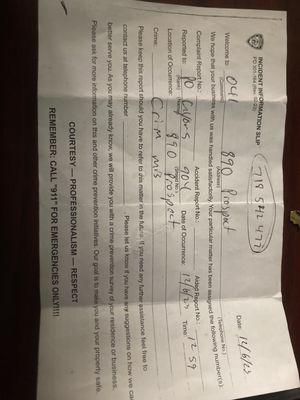 INCIDENT INFORMATION SLIP
PD 301-164 (Rev. 02-23)
718 542 477
Date: 12/6/23
Welcome to: 041
890 Prospect
(Command)
(Address)
(Telephone No.)
We hope that your business with us was handled satisfactorily. Your particular matter has been assigned the following number(s):
Complaint Report No.: Accident Report No.: Aided Report No.:
Reported to: PO 904 Date of Occurrence: 12/6/23 Time: 12 59
(Rank) (Name) (Shield No.)
Location of Occurrence: 890 Prospect
Crime: Crim Mis
Please keep this report should you have to refer to this matter in the future. If you need any further assistance feel free to
contact us at telephone number Please let us know if you have any suggestions on how we can
better serve you. As you may already know, we will provide you with a crime prevention survey of your residence or business.
Please ask for more information on this and other crime prevention initiatives. Our goal is to make you and your property safe.
COURTESY — PROFESSIONALISM — RESPECT
REMEMBER: CALL "911" FOR EMERGENCIES ONLY!!!!